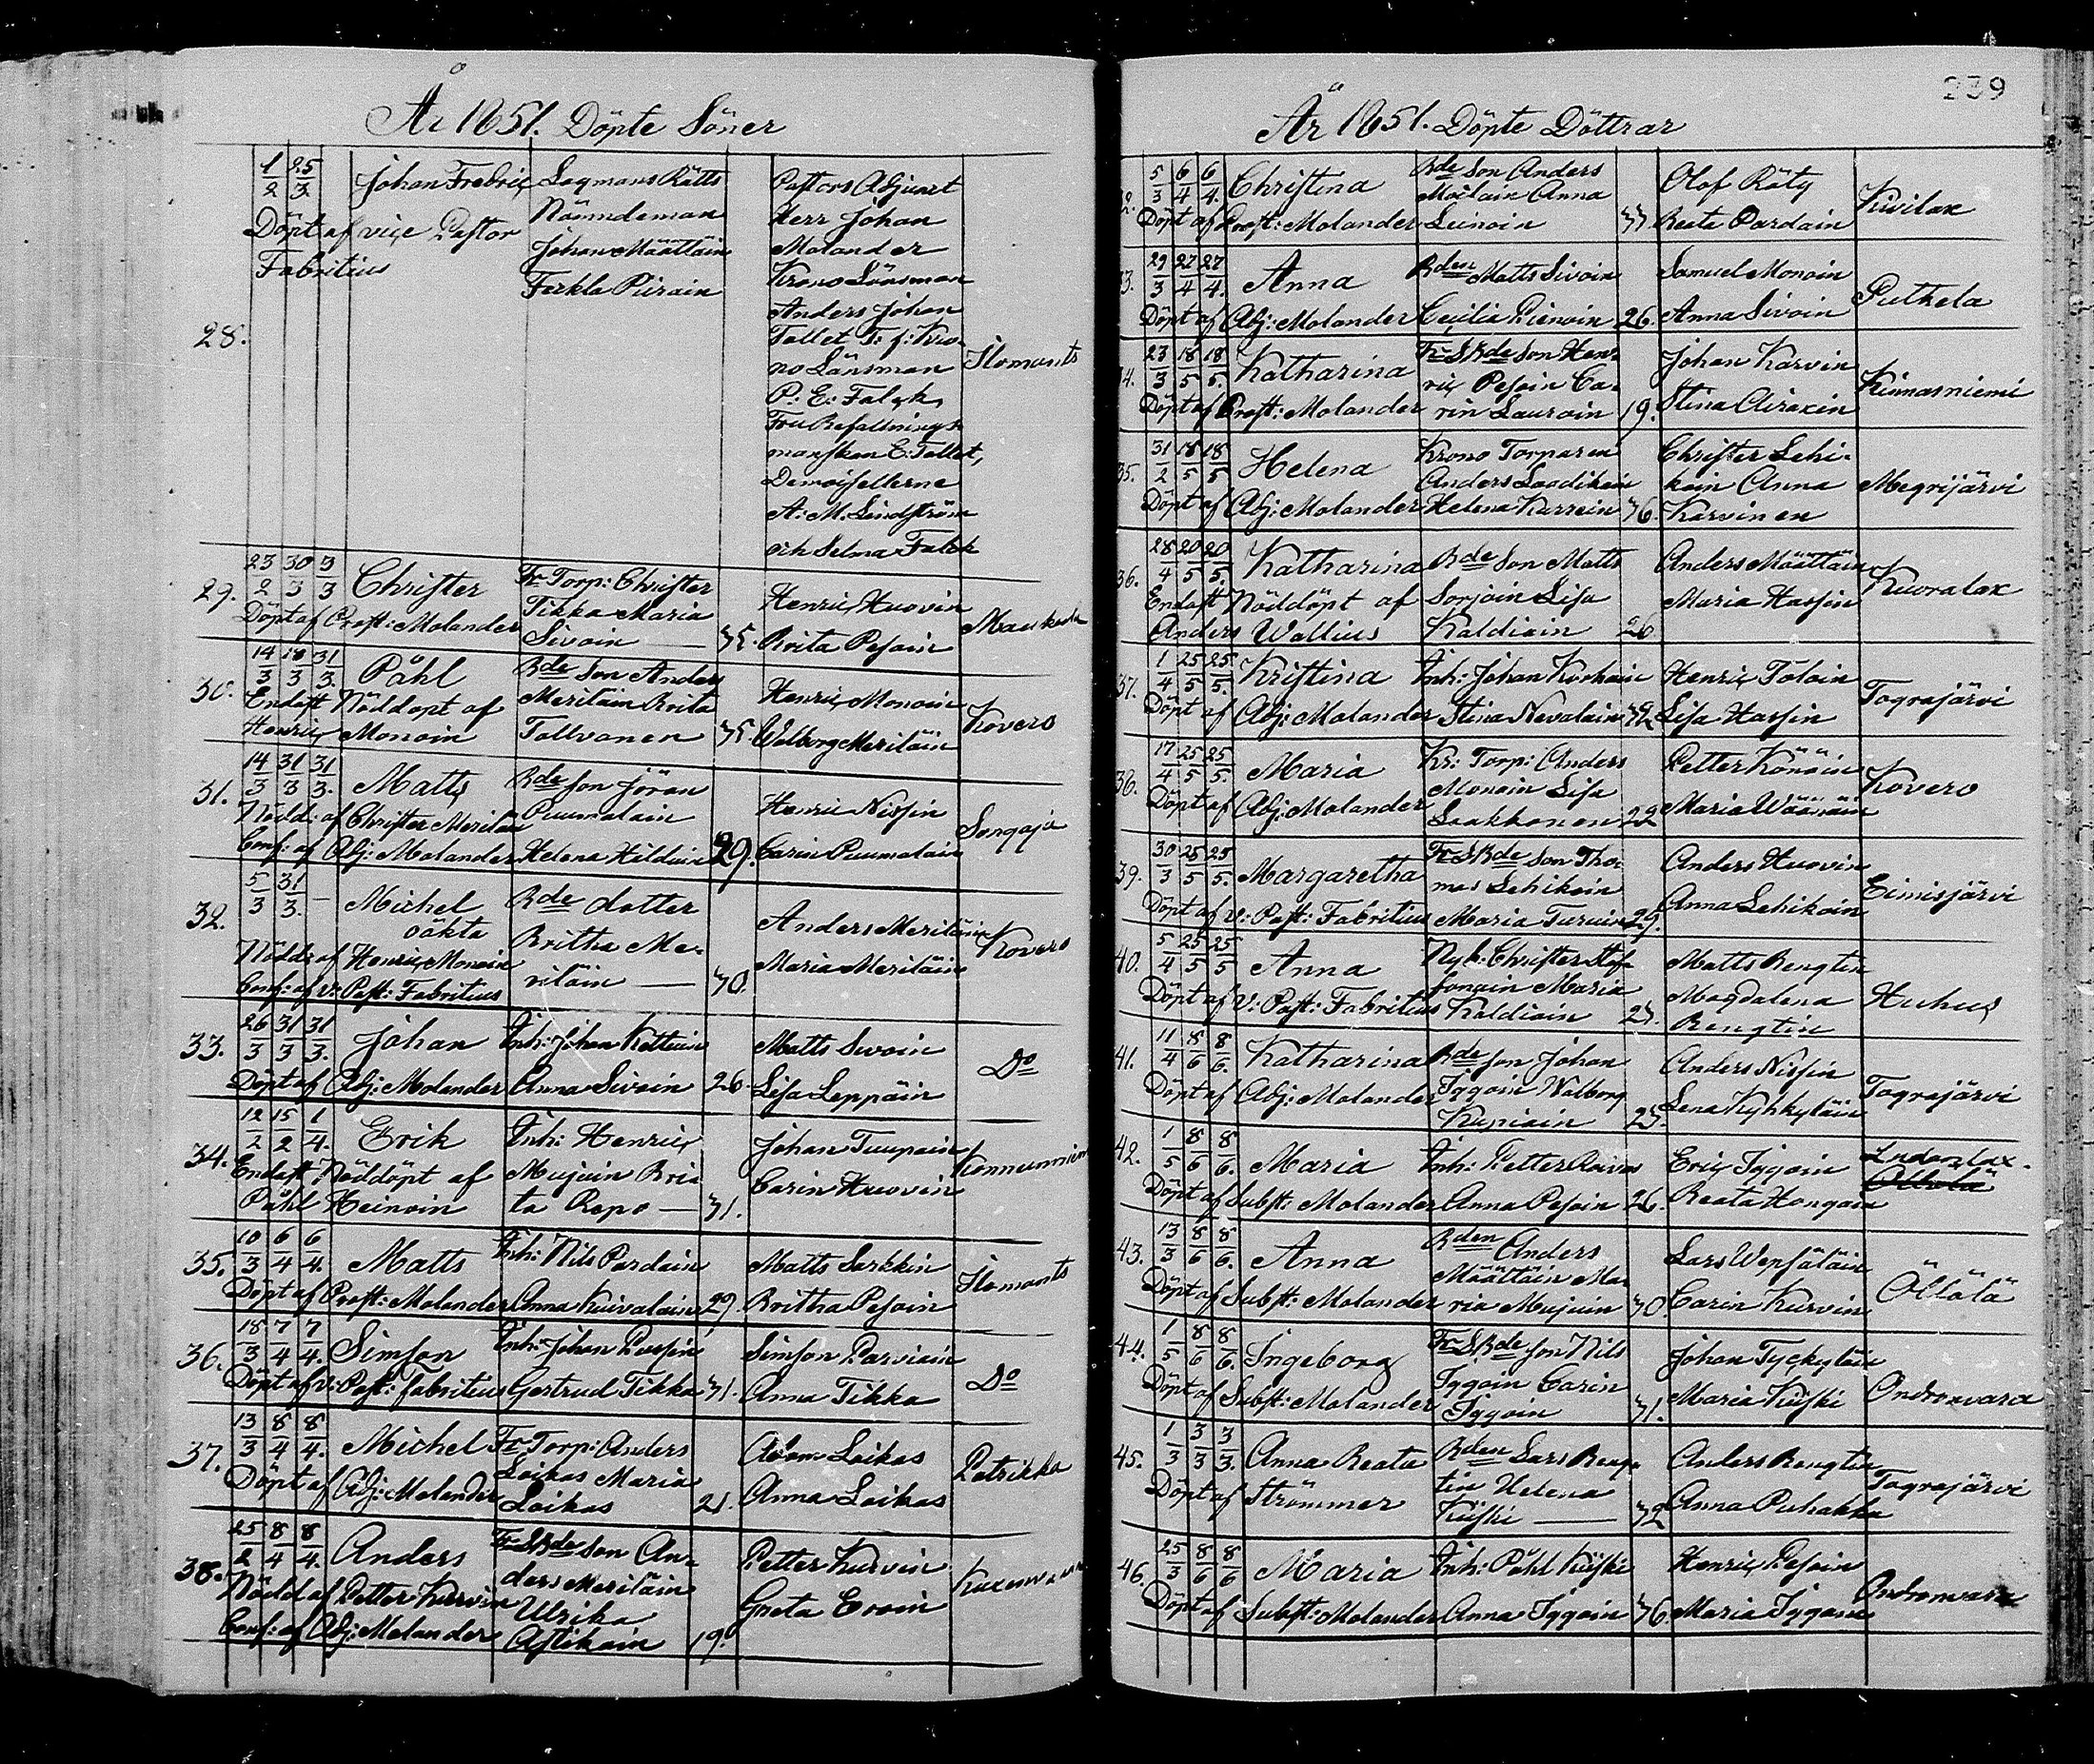 År 1851. Döpte Söner
28.
1/2 25/3 Johan Fredric
Döpt af vice Pastor
Fabritius
Lagmans Rätts
Nämndeman
Johan Määttäin
Tekla Piirain
Pastors Adjunct
Herr Johan
Molander
Krono Länsman
Anders Johan
Tallet T: f: Kro-
no Länsman
P: E: Falck,
Fru Befallnings-
manskan E: Tallet,
Demoisellerne
A: M: Lindström
och Selma Falck
Ilomants
29. 23/2 30/3 3/3 Christer
Döpt af Prost: Molander
Fr Torp: Christer
Tikka Maria
Sivoin — 35.
Henric Huovin
Brita Pesoin
30. 14/3 18/3 31/3. Påhl
Endast Nöddöpt af
Henric Monoin
Bde Son Anders
Meriläin Brita
Tallvanen 35
Henric Monoin
Walborg Meriläin
Kovero
31. 14/3 31/3 31/3. Matts
Nödd: af Christer Meriläin
Conf: af Adj: Molander
Bde Son Jöran
Puumalain
Helena Hilduin 29.
Henric Nissin
Carin Puumalain
32. 5/3 31/3. — Michel
oäkta
Nödd: af Henric Monoin
Conf: af v: Past: Fabritius
Bde dotter
Britha Me-
riläin — 30.
Anders Meriläin
Maria Meriläin
Kovero
33. 26/3 31/3 31/3. Johan
Döpt af Adj: Molander
Inh: Johan Kettuin
Anna Sivoin 26
Matts Sivoin
Lisa Leppäin
Do
34. 12/2 15/2 1/4. Erik
Endast Nöddöpt af
Påhl Heinoin
Inh: Henric
Mujuin Bri-
ta Repo — 31.
Johan Tuupain
Carin Huovin
35. 10/3 6/4 6/4. Matts
Döpt af Prost: Molander
Inh: Nils Pardain
Anna Kuivalain 29.
Matts Sarkkin
Britha Pesoin
Ilomants
36. 18/3 7/4 7/4. Simson
Döpt af v: Past: Fabritius
Inh: Johan Purssin
Gertrud Tikka 31.
Simson Parviain
Anna Tikka
Do
37. 13/3 8/4 8/4. Michel
Döpt af Adj: Molander
Fr Torp: Anders
Loikas Maria
Loikas 21.
Adam Loikas
Anna Loikas
Patrikka
38. 25/2 8/4 8/4. Anders
Nödd af Petter Kurvin
Conf: af Adj: Molander
Fr SBde Son An-
ders Meriläin
Ulrika
Astikain 19.
Petter Kurvin
Greta Eroin
239
År 1851. Döpte Döttrar
2. 5/3 6/4 6/4. Christina
Döpt af Prost: Molander
Bde Son Anders
Moilain Anna
Leinoin 33.
Olof Räty
Beata Pardain
Kivilax
3. 29/3 27/4 27/4. Anna
Döpt af Adj: Molander
Bden Matts Sivoin
Cecilia Pienoin 26.
Samuel Monoin
Anna Sivoin
Putkela
4. 23/3 18/5 18/5. Katharina
Döpt af Prost: Molander
Fr SBde Son Hen-
ric Pesoin Ca-
rin Lauroin 19.
Johan Karvin
Stina Airaxin
Kinnasniemi
35. 31/2 18/5 18/5 Helena
Döpt af Adj: Molander
Krono Torparen
Anders Laadikain
Helena Kurrein 36.
Christer Lehi-
koin Anna
Karvinen
Megrijärvi
36. 28/4 20/5 20/5. Katharina
Endast Nöddöpt af
Anders Wallius
Bde Son Matts
Sorjoin Lisa
Kaldiain 26
Anders Määttäin
Maria Hassin
Kuoralax
37. 1/4 25/5 25/5. Kristina
Döpt af Adj: Molander
Inh: Johan Korhoin
Stina Nevalain 32
Henric Toloin
Lisa Hassin
Tograjärvi
38. 17/4 25/5 25/5. Maria
Döpt af Adj: Molander
Kr: Torp: Anders
Monoin Lisa
Laakkonen 22
Petter Könöin
Maria Wäänäin
Kovero
39. 30/3 25/5 25/5. Margaretha
Döpt af v: Past: Fabritius
Fr SBde Son Tho-
mas Lehikoin
Maria Turuin 29.
Anders Huovin
Anna Lehikoin
Eimisjärvi
40. 5/4 25/5 25/5 Anna
Döpt af V: Past: Fabritius
Nyb: Christer Hof-
fonain Maria
Kaldiain 27.
Matts Bengtin
Magdalena
Bengtin
Huhus
41. 11/4 8/6 8/6. Katharina
Döpt af Adj: Molander
Bde Son Johan
Iggoin Walborg
Kupiain 27.
Anders Nissin
Lena Kyhkyläin
Tograjärvi
42. 1/5 8/6 8/6. Maria
Döpt af Subst: Molander
Inh: Petter Roivas
Anna Pesoin 26.
Eric Iggoin
Beata Hongain
43. 13/3 8/6 8/6. Anna
Döpt af Subst: Molander
Bden Anders
Määttäin Ma-
ria Mujuin 30.
Lars Wepsäläin
Carin Kurvin
Öllölä
44. 1/5 8/6 8/6. Ingeborg
Döpt af Subst: Molander
Fr SBde Son Nils
Iggoin Carin
Iggoin 31.
Johan Tyckyläin
Maria Kiiski
Ondronvara
45. 1/3 3/3 3/3. Anna Beata
Döpt af Strömmer
Bden Lars Beng-
tin Helena
Kiiski — 32
Anders Bengtin
Anna Puhakka
Tograjärvi
46. 25/3 8/6 8/6 Maria
Döpt af Subst: Molander
Inh: Påhl Kiiski
Anna Iggoin 36
Henric Pesoin
Maria Iggoin
Ondronvara